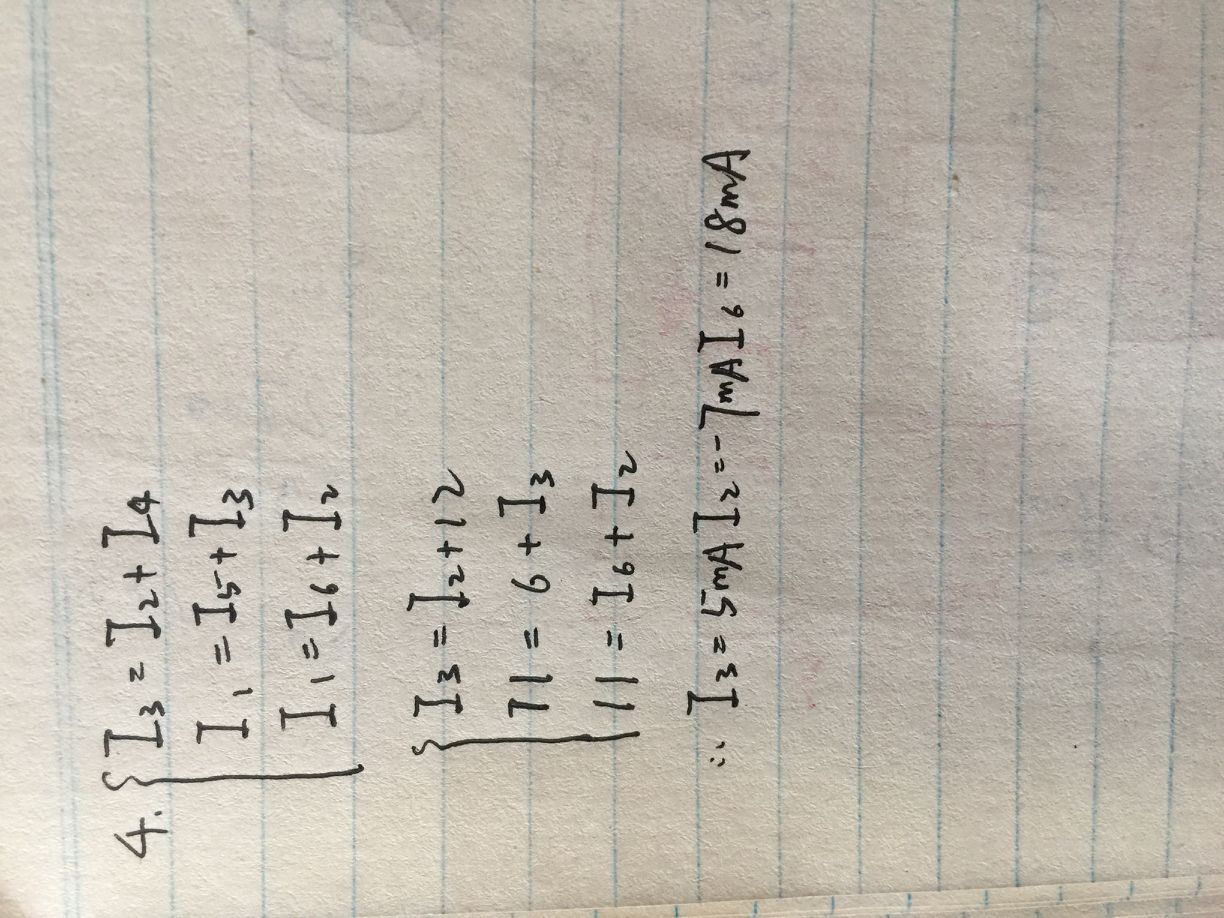 4. I₃ = I₂ + I₄
I₁ = I₅ + I₃
I₁ = I₆ + I₂
I₃ = I₂ + 12
11 = 6 + I₃
11 = I₆ + I₂
∴ I₃ = 5mA I₂ = -7mA I₆ = 18mA